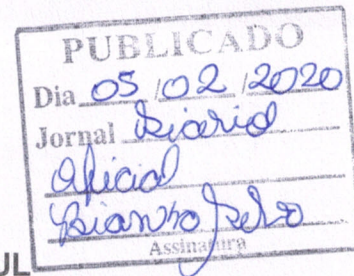 PUBLICADO
Dia 05 / 02 / 2020
Jornal Diario
Oficial
Assinatura
UL